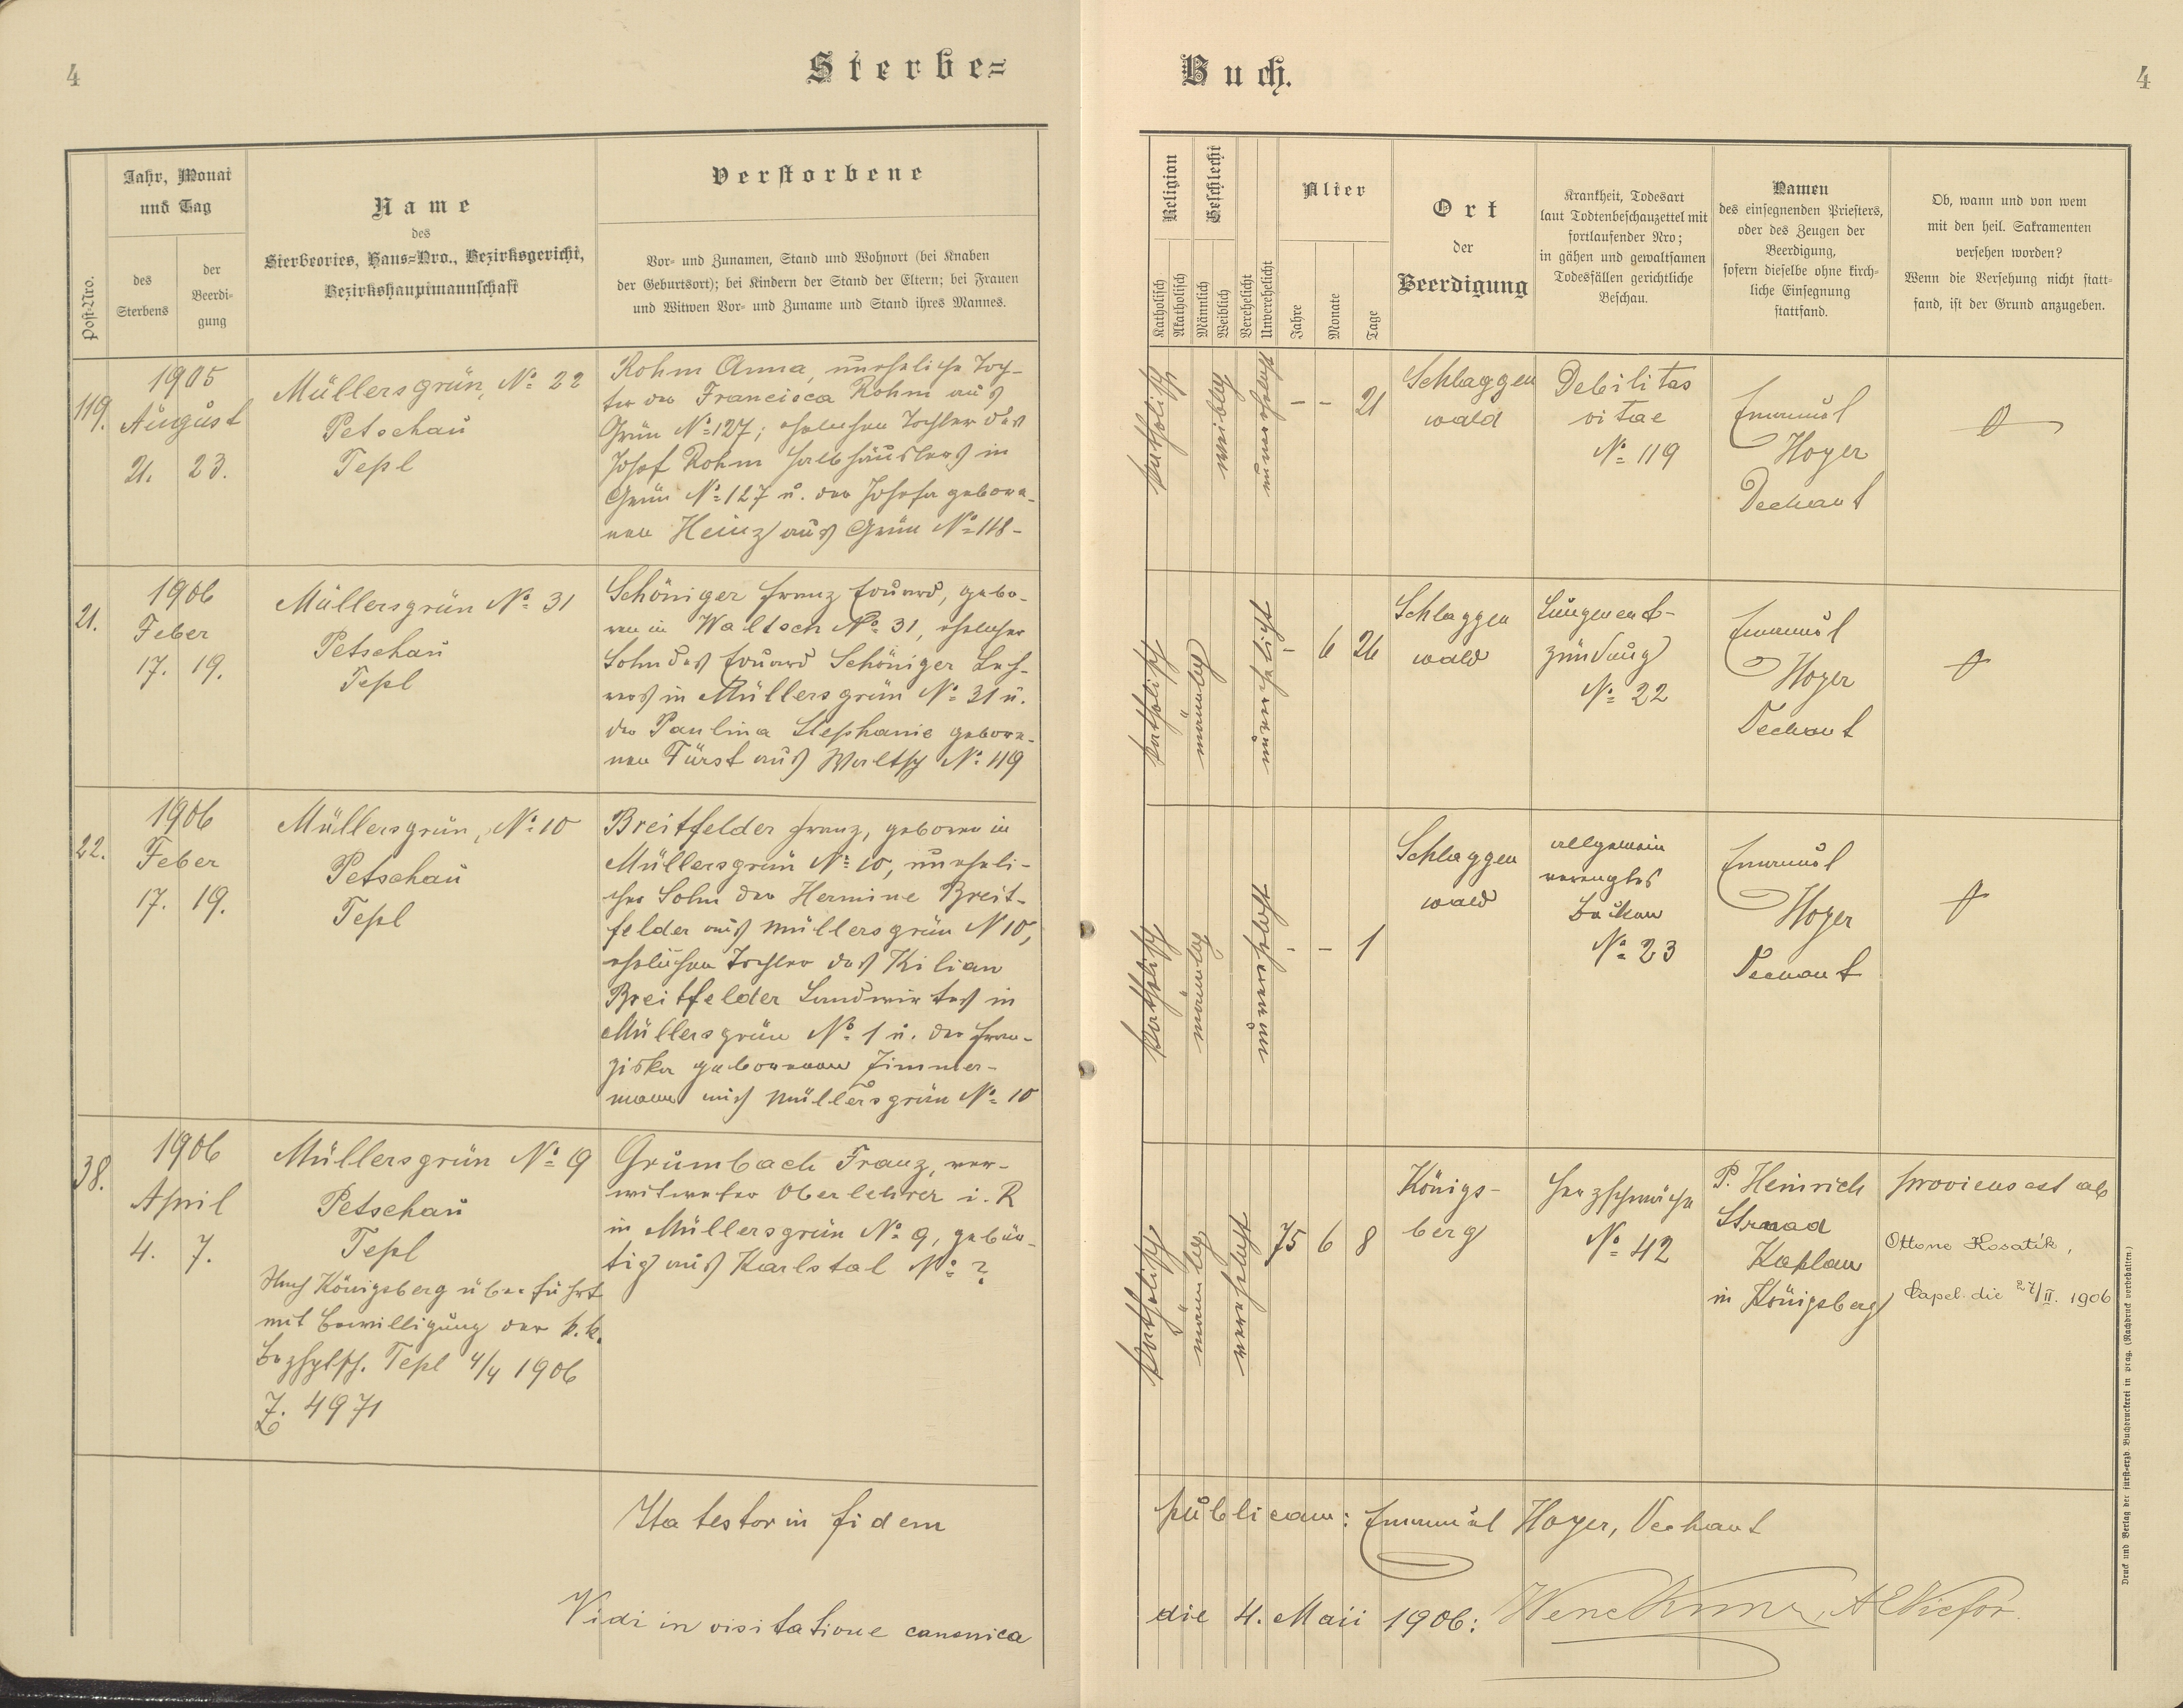 4
Sterbe=
Buch.
4
Post-Nro.
Jahr, Monat
und Tag
des
Sterbens
der
Beerdi-
gung
Name
des
Sterbeortes, Haus=Nro., Bezirksgericht,
Bezirkshauptmannschaft
Verstorbene
Vor- und Zunamen, Stand und Wohnort (bei Knaben
der Geburtsort); bei Kindern der Stand der Eltern; bei Frauen
und Witwen Vor- und Zuname und Stand ihres Mannes.
Religion
Katholisch
Akatholisch
Geschlecht
Männlich
Weiblich
Verehelicht
Unverehelicht
Alter
Jahre
Monate
Tage
Ort
der
Beerdigung
Krankheit, Todesart
laut Todtenbeschauzettel mit
fortlaufender Nro;
in gähen und gewaltsamen
Todesfällen gerichtliche
Beschau.
Namen
des einsegnenden Priesters,
oder des Zeugen der
Beerdigung,
sofern dieselbe ohne kirch-
liche Einsegnung
stattfand.
Ob, wann und von wem
mit den heil. Sakramenten
versehen worden?
Wenn die Versehung nicht statt-
fand, ist der Grund anzugeben.
119.
1905
August
21. 23.
Müllersgrün, No 22
Petschau
Tepl
Rohm Anna, uneheliche Toch-
ter der Francisca Rohm aus
Grün No 127; ehelichen Tochter des
Josef Rohm Halbhäuslers in
Grün No 127 u. der Josefa gebore-
nen Heinz aus Grün No 118-
katholisch
weiblich
unverehelicht
- - 21
Schlaggen
wald
Debilitas
vitae
No 119
Emanuel
Hoyer
Dechant
21.
1906
Feber
17. 19.
Müllersgrün No 31
Petschau
Tepl
Schöniger Franz Eduard, gebo-
ren in Waltsch No 31, ehelicher
Sohn des Eduard Schöniger Leh-
rers in Müllersgrün No 31 u.
der Paulina Stephanie gebore-
nen Fürst aus Waltsch No 119
katholisch
männlich
unverehelicht
- 6 26
Schlaggen
wald
Lungenent-
zündung
No 22
Emanuel
Hoyer
Dechant
22.
1906
Feber
17. 19.
Müllersgrün, No 10
Petschau
Tepl
Breitfelder Franz, geboren in
Müllersgrün No 10, uneheli-
cher Sohn der Hermine Breit-
felder aus Müllersgrün N 10,
ehelichen Tochter des Kilian
Breitfelder Landwirtes in
Müllersgrün No 1 u. der Fran-
ziska geborenen Zimmer-
mann aus Müllersgrün No 10
katholisch
männlich
unverehelicht
- - 1
Schlaggen
wald
allgemein
verengtes
Becken
No 23
Emanuel
Hoyer
Dechant
38.
1906
April
4. 7.
Müllersgrün No 9
Petschau
Tepl
Nach Königsberg überführt
mit Bewilligung der k.k.
Bezhptsch. Tepl 4/4 1906
Z. 4971
Grumbach Franz, ver-
witweter Oberlehrer i. R
in Müllersgrün No 9, gebür-
tig aus Karlstal No ?
katholisch
männlich
verehelicht
75 6 8
Königs-
berg
Herzschwäche
No 42
P. Heinrich
Strnad
Kaplan
in Königsberg
provisus est ab
Ottone Kosatík,
Capel. die 27/II. 1906
Ita testor in fidem
publicam: Emanuel Hoyer, Dechant
Vidi in visitatione canonica
die 4. Maii 1906:
Druck und Verlag der fürst-erzb. Buchdruckerei in Prag. (Nachdruck vorbehalten.)